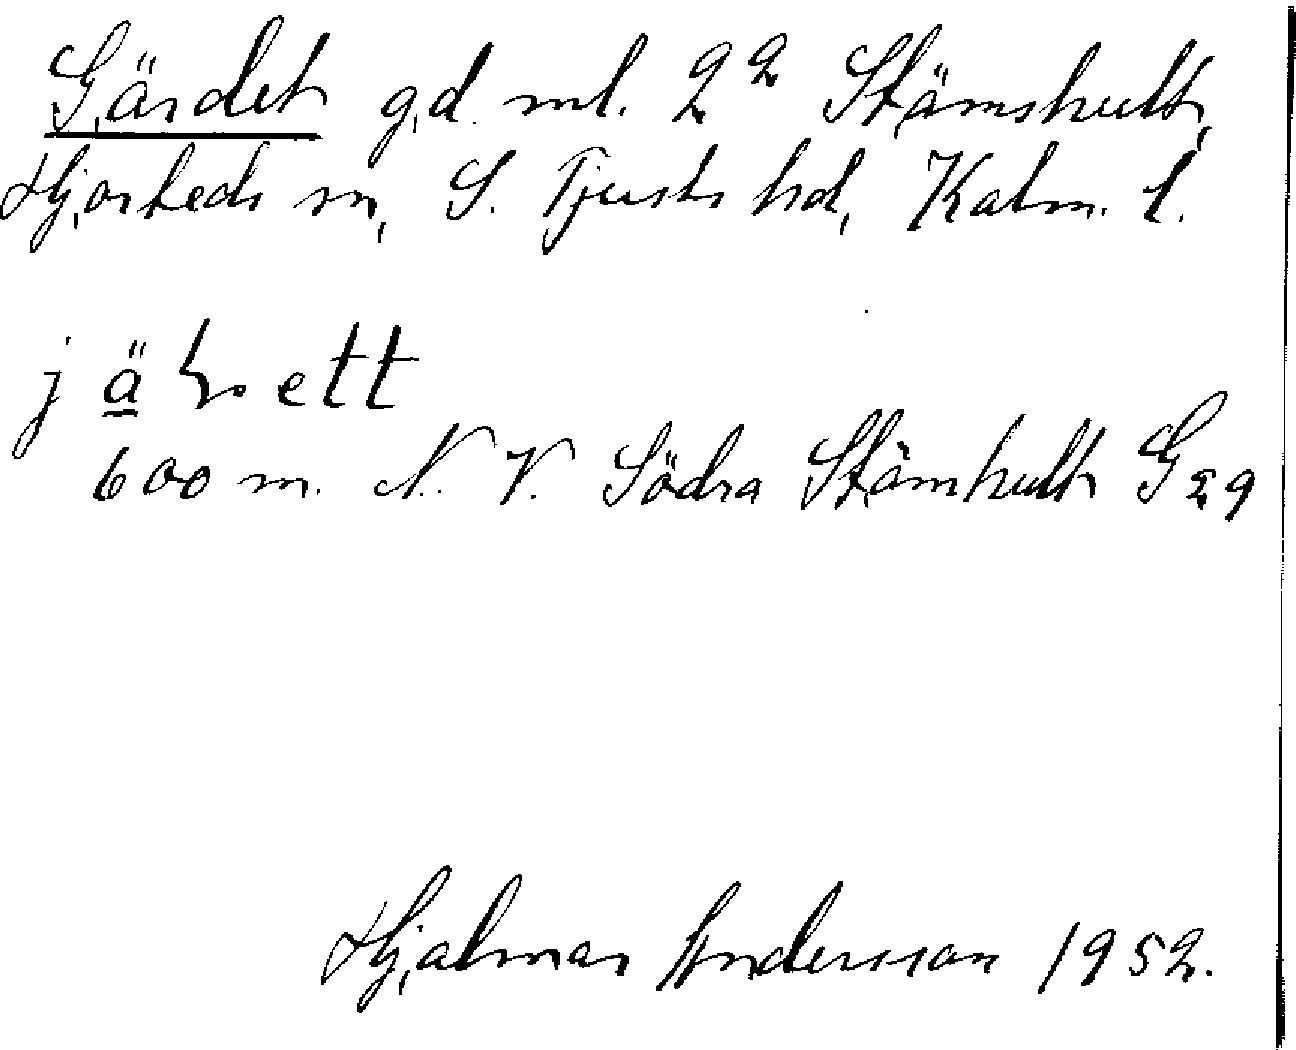 Gärdet gd ml. 2² Stämshult,
Hjorteds sn, S. Tjusts hd, Kalm. l.
ett
600 m. N. V. Södra Stämhult G 29
Hjalmar Andersson 1952.